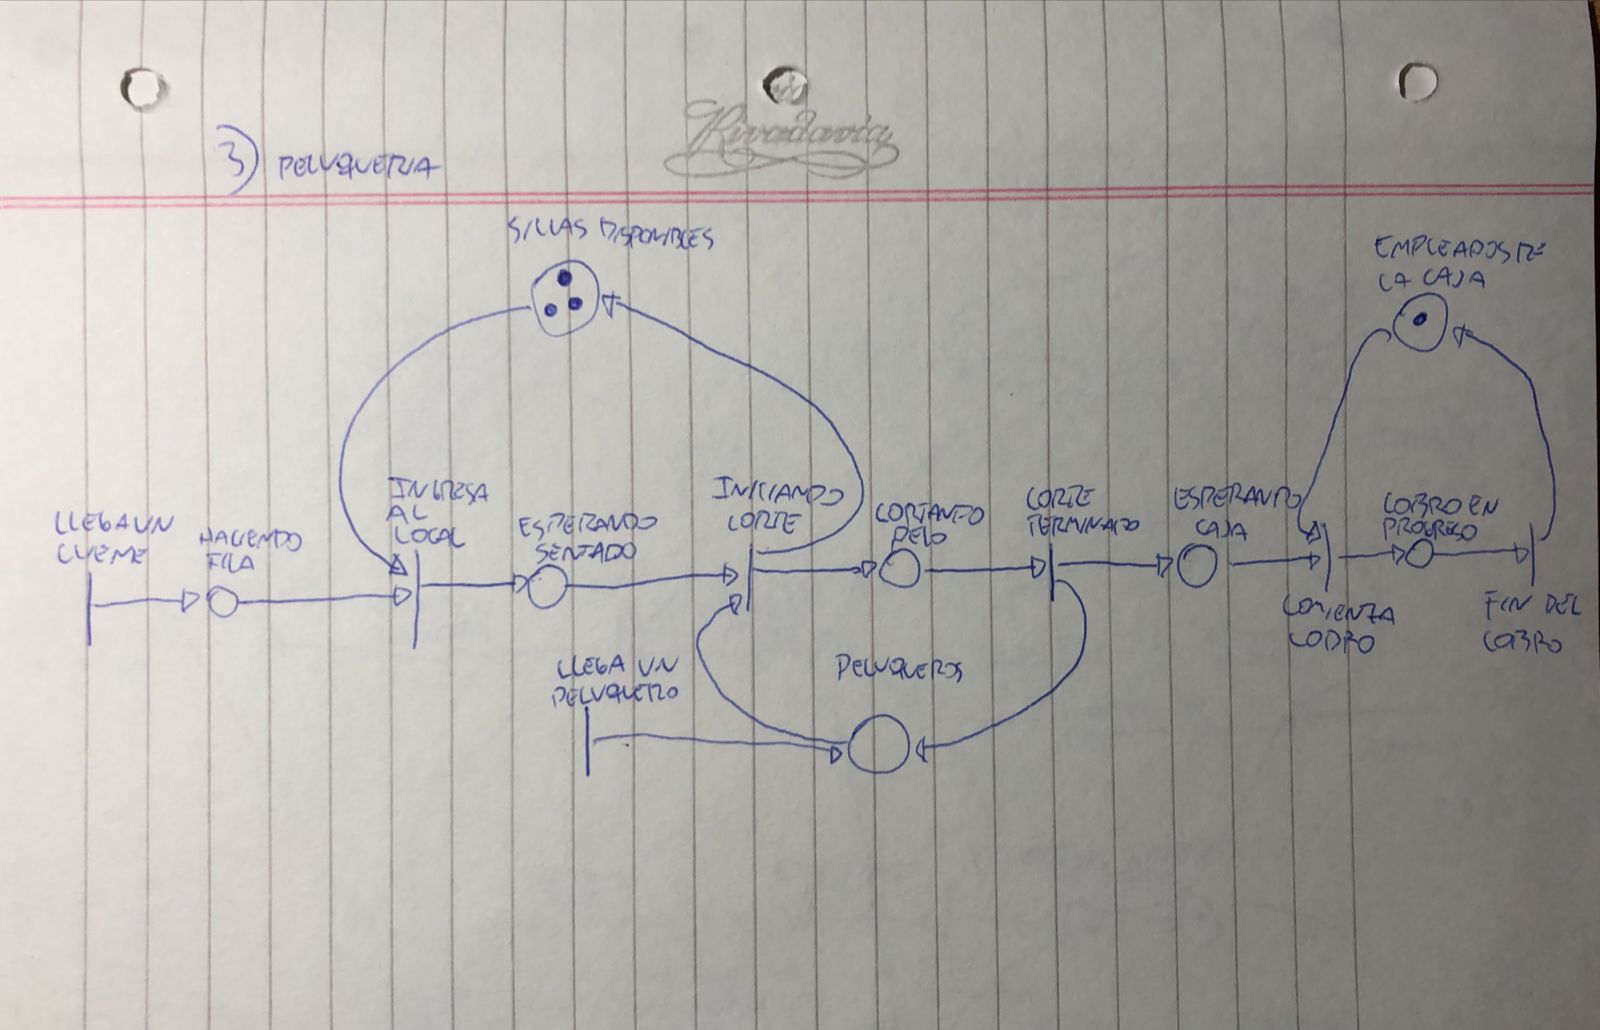 Rivadavia
3) PELUQUERIA
SILLAS DISPONIBLES
EMPLEADOS DE
LA CAJA
LLEGA UN
CLIENTE
HACIENDO
FILA
INGRESA
AL
LOCAL
ESPERANDO
SENTADO
INICIANDO
CORTE
CORTANDO
PELO
CORTE
TERMINADO
ESPERANDO
CAJA
COMIENZA
COBRO
COBRO EN
PROGRESO
FIN DEL
COBRO
LLEGA UN
PELUQUERO
PELUQUEROS